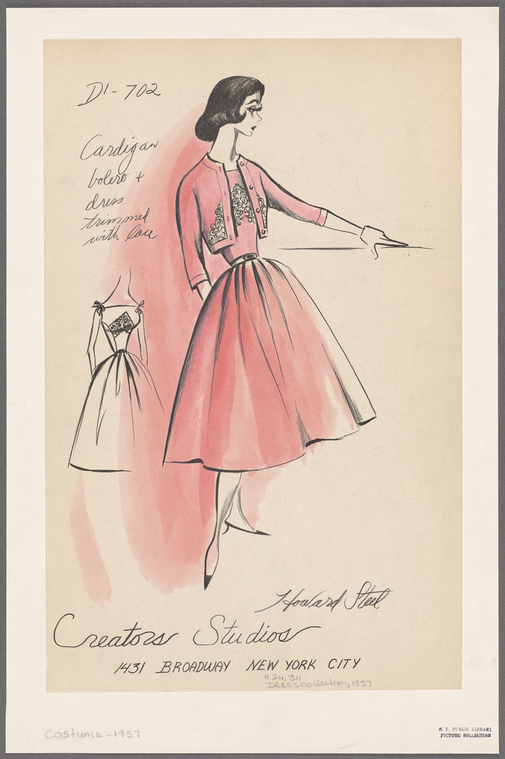 D1-702
Cardigan
bolero +
dress
trimmed
with lace
Howard Steel
Creators Studios
1431 BROADWAY NEW YORK CITY
#24,311
Dress collection, 1957
Costume - 1957
N. Y. PUBLIC LIBRARY
PICTURE COLLECTION